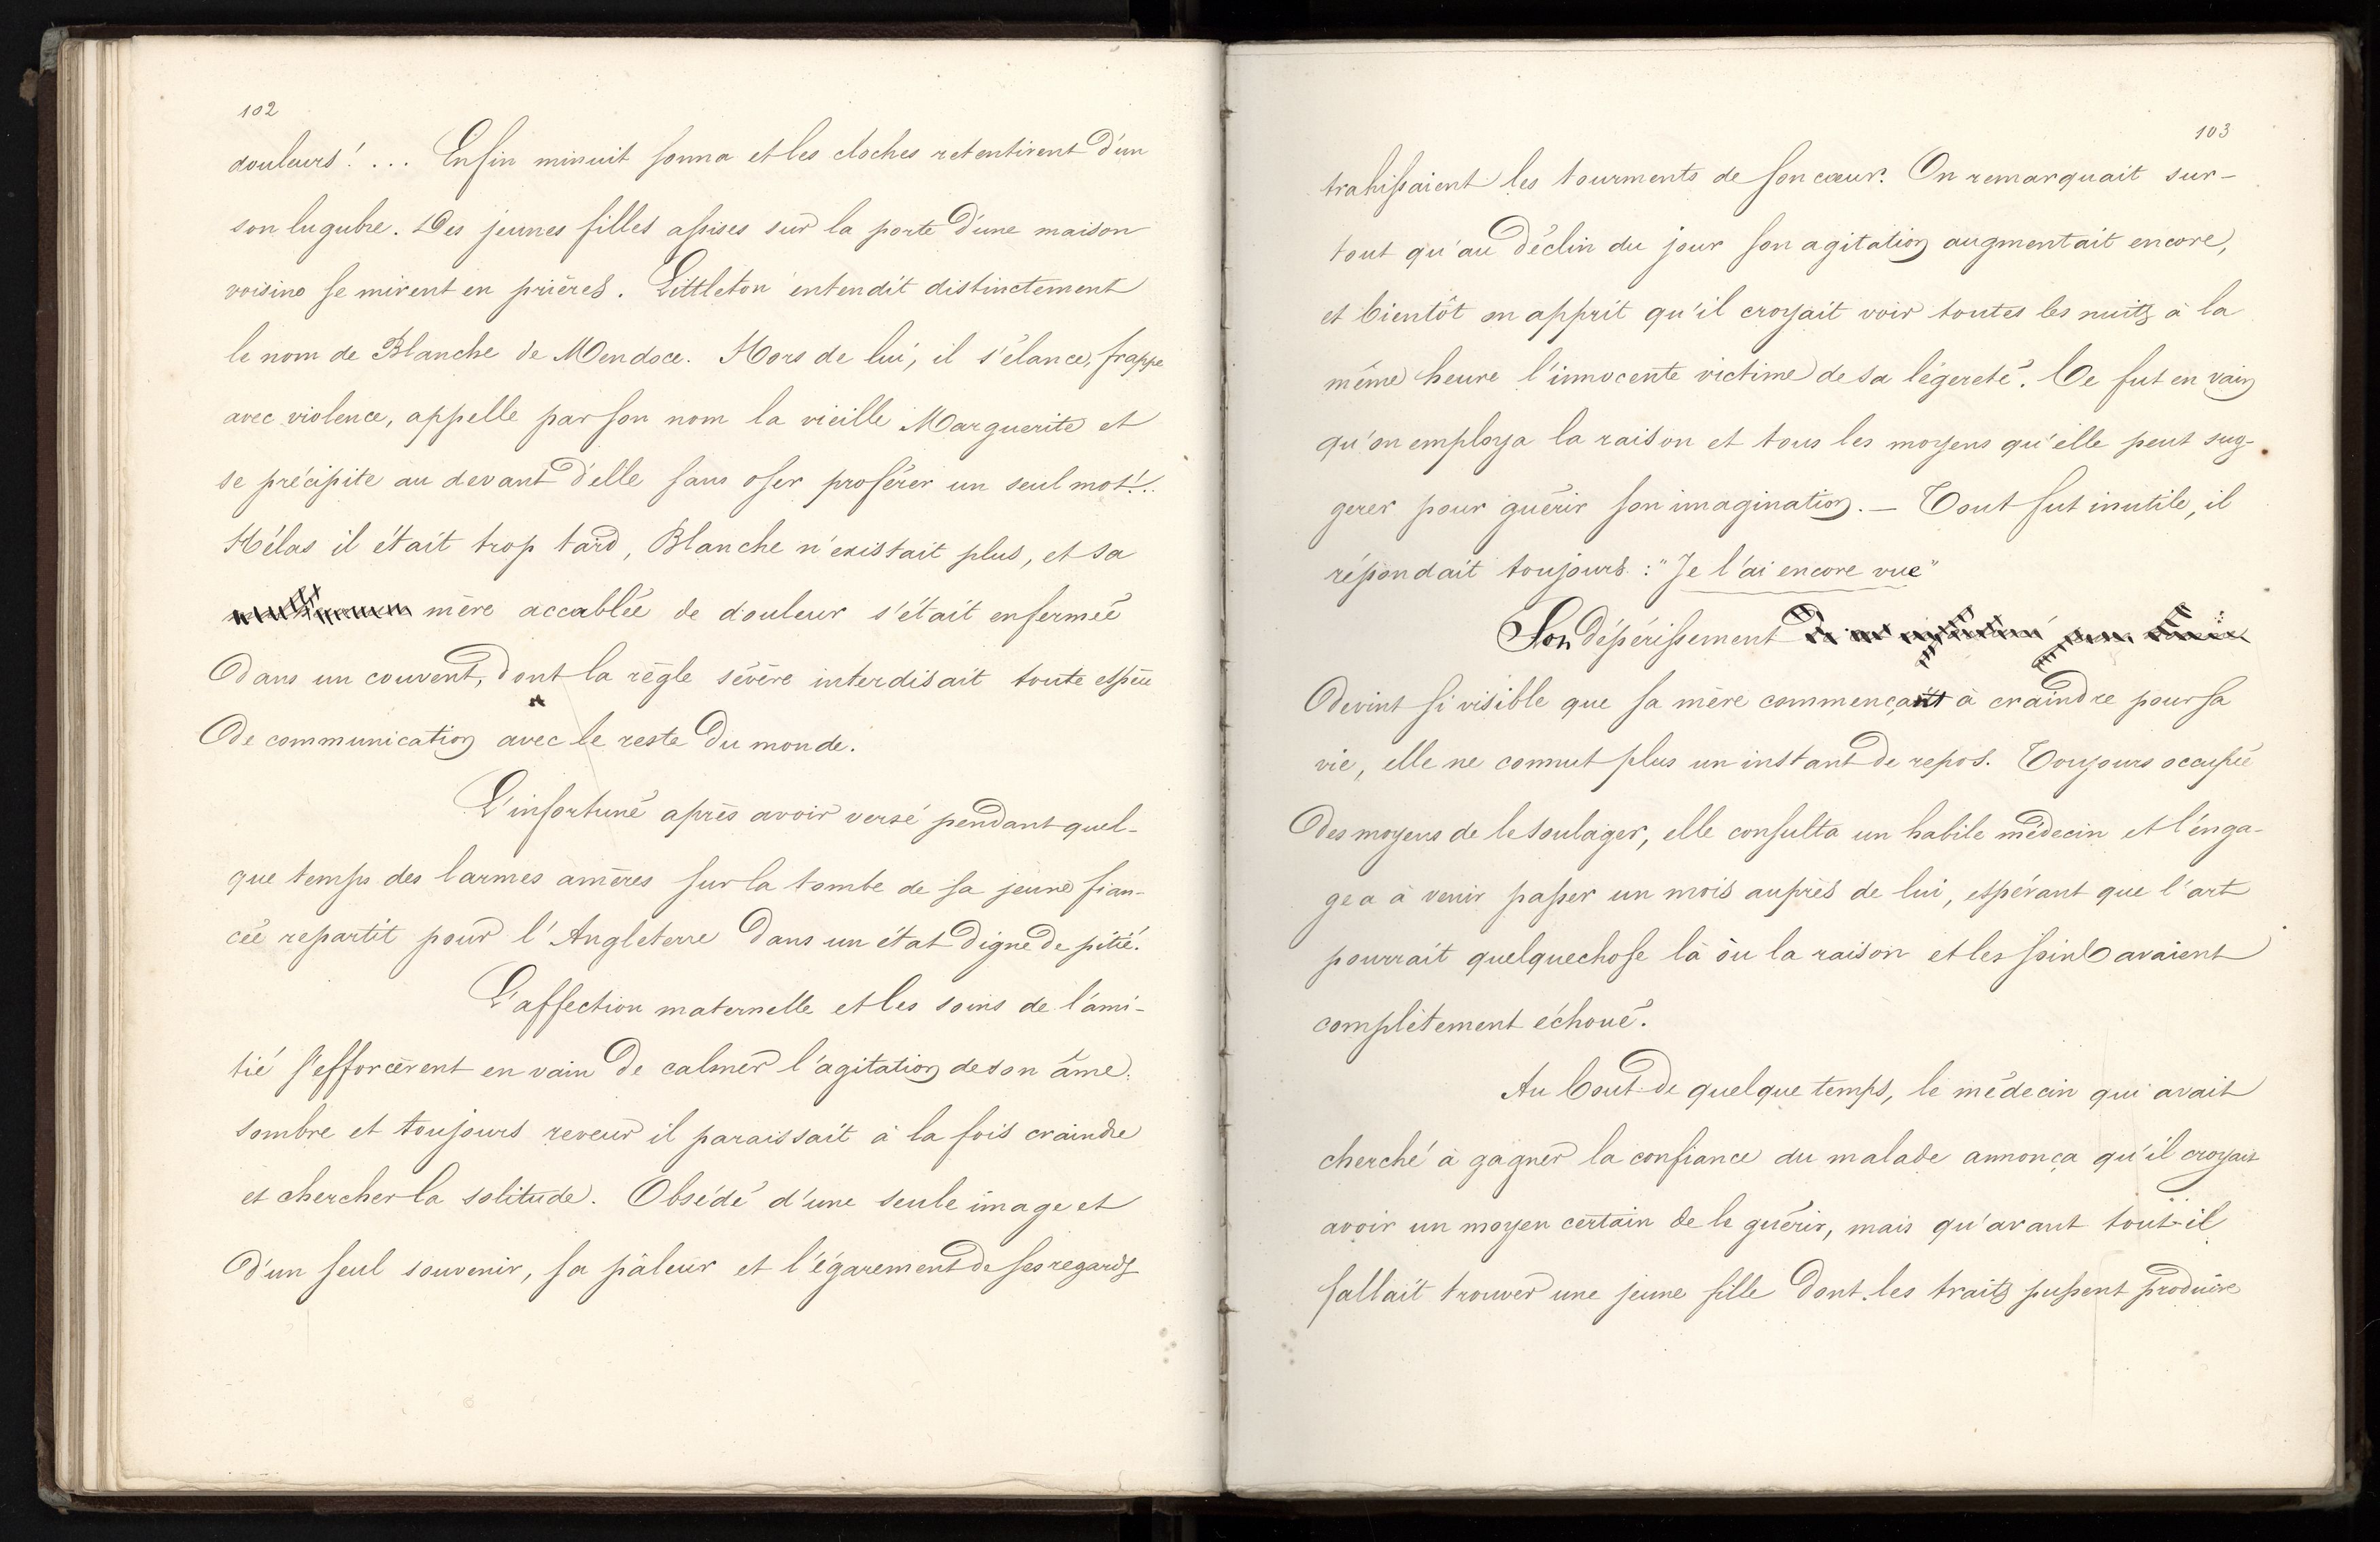 102
douleurs! ... Enfin minuit sonna et les cloches retentirent d'un
son lugubre. Des jeunes filles assises sur la porte d'une maison
voisine se mirent en prières. Littleton entendit distinctement
le nom de Blanche de Mendoce. Hors de lui, il s'élance, frappe
avec violence, appelle par son nom la vieille Marguerite et
se précipite au devant d'elle sans oser proférer un seul mot!..
Hélas il était trop tard, Blanche n'existait plus, et sa
mère accablée de douleur s'était enfermée
dans un couvent, dont la règle sévère interdisait toute espèce
de communication avec le reste du monde.
L'infortuné après avoir versé pendant quel-
que temps des larmes amères sur la tombe de sa jeune fian-
cée repartit pour l'Angleterre dans un état digne de pitié.
L'affection maternelle et les soins de l'ami-
tié s'efforcèrent en vain de calmer l'agitation de son âme:
sombre et toujours reveur il paraissait à la fois craindre
et chercher la solitude. Obsédé d'une seule image et
d'un seul souvenir, sa pâleur et l'égarement de ses regards
103
trahissaient les tourments de son cœur. On remarquait sur-
tout qu'au déclin du jour son agitation augmentait encore,
et bientôt on apprit qu'il croyait voir toutes les nuits à la
même heure l'innocente victime de sa légereté. Ce fut en vain
qu'on employa la raison et tous les moyens qu'elle peut sug-
gerer pour guérir son imagination. — Tout fut inutile, il
répondait toujours: "Je l'ai encore vue"
Son dépérissement
devint si visible que sa mère commença à craindre pour sa
vie, elle ne connut plus un instant de repos. Toujours occupée
des moyens de le soulager, elle consulta un habile médecin et l'enga-
gea à venir passer un mois auprès de lui, espérant que l'art
pourrait quelquechose là où la raison et les soins avaient
complètement échoué.
Au bout de quelque temps, le médecin qui avait
cherché à gagner la confiance du malade annonça qu'il croyait
avoir un moyen certain de le guérir, mais qu'avant tout il
fallait trouver une jeune fille dont les traits pussent produire